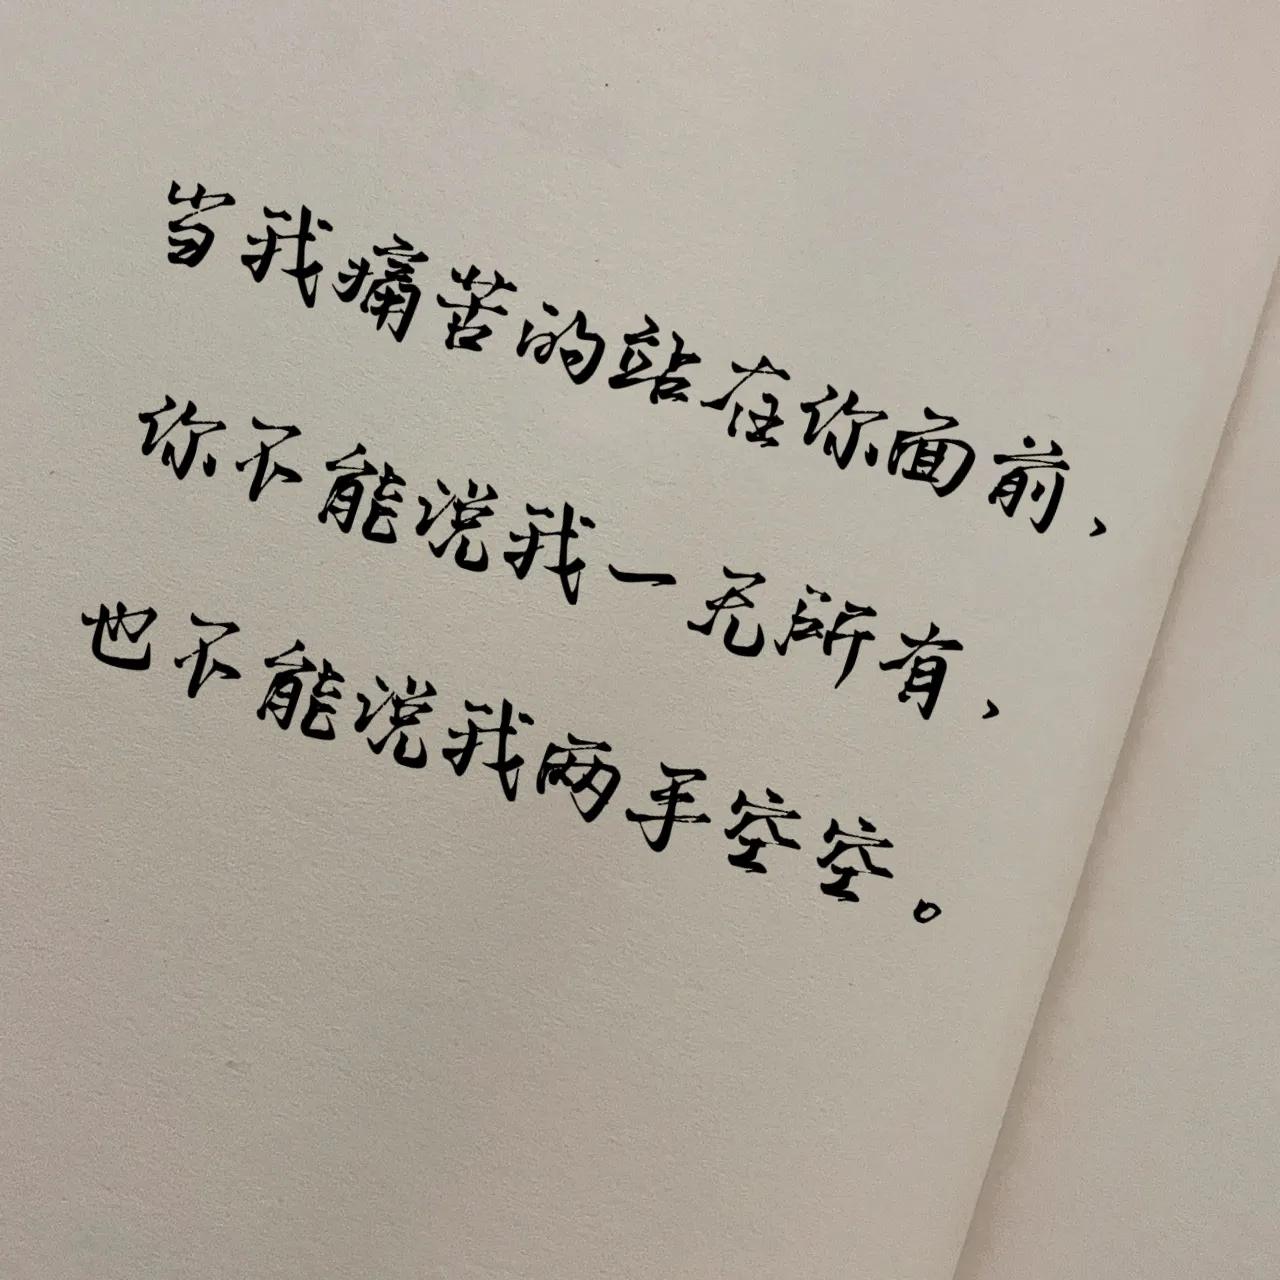 当我痛苦的站在你面前，
你不能说我一无所有，
也不能说我两手空空。